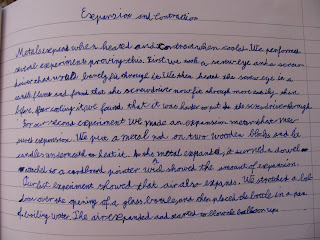 Expansion and Contraction
Metals expand when heated and contract when cooled. We performed
several experiments proving this. First we took a screw eye and a screw
driver that would barely go through it. We then heated the screw eye in a
candle flame and found that the screwdriver now fit through more easily than
before. After cooling it we found that it was harder to put the screwdriver through
For our second experiment we made an expansion meter that mea-
sured expansion. We put a metal rod on two wooden blocks and lit
candles underneath to heat it. As the metal expanded, it turned a dowel
attached to a cardboard pointer which showed the amount of expansion.
Our last experiment showed that air also expands. We stretched a bal-
loon over the opening of a glass bottle, and then placed the bottle in a pan
of boiling water. The air expanded and started to blow the balloon up.